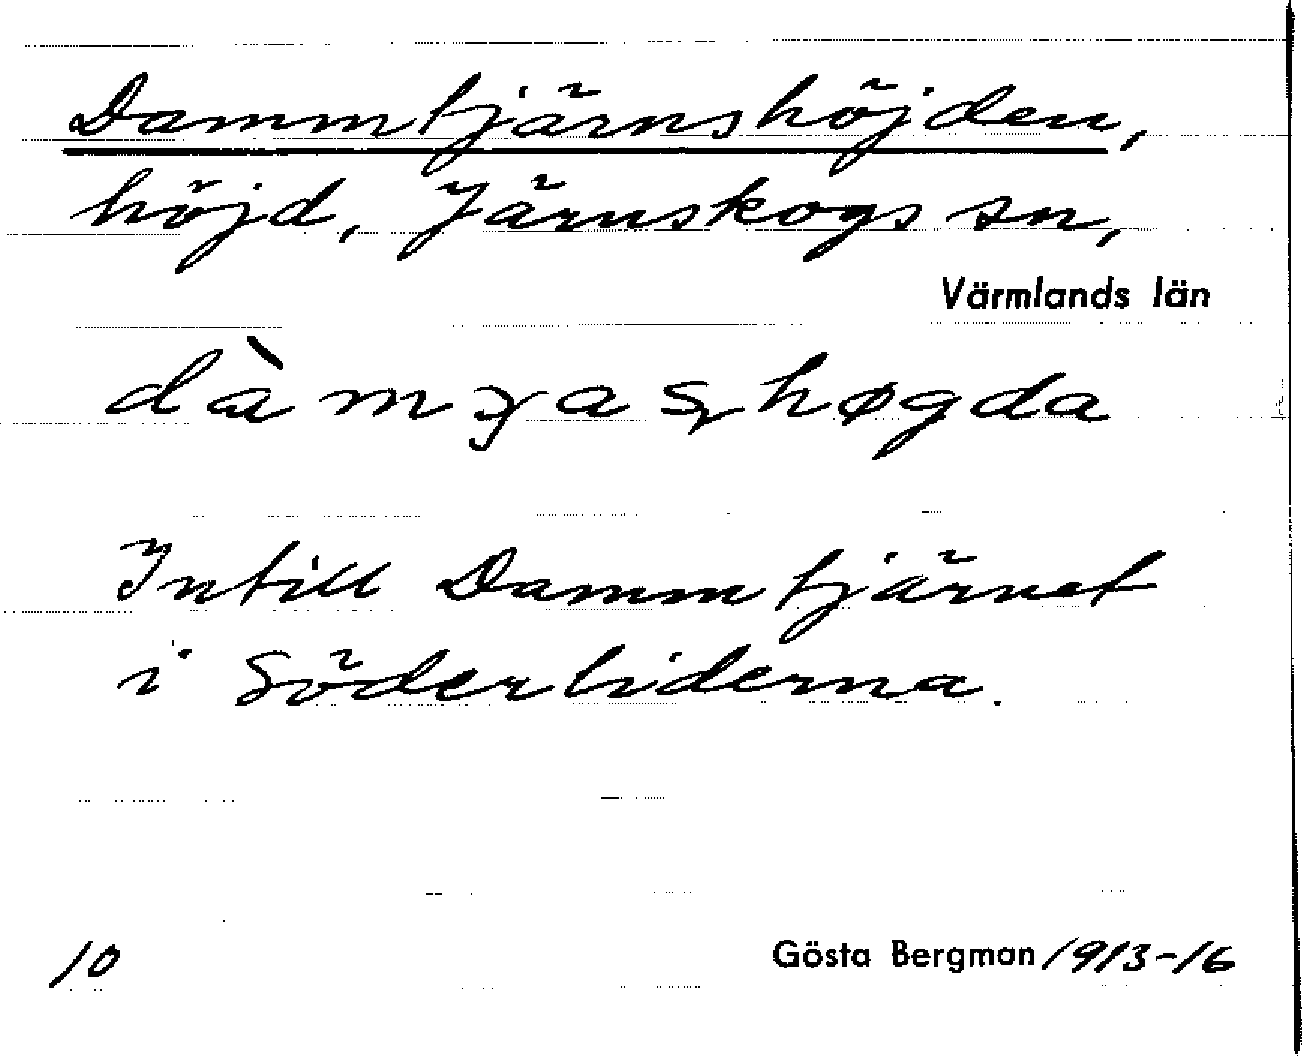 Dammtjärnshöjden,
höjd, Järnskogs sn,
Värmlands län
Intill Dammtjärnet
i Söderliderna.
10
Gösta Bergman 1913-16